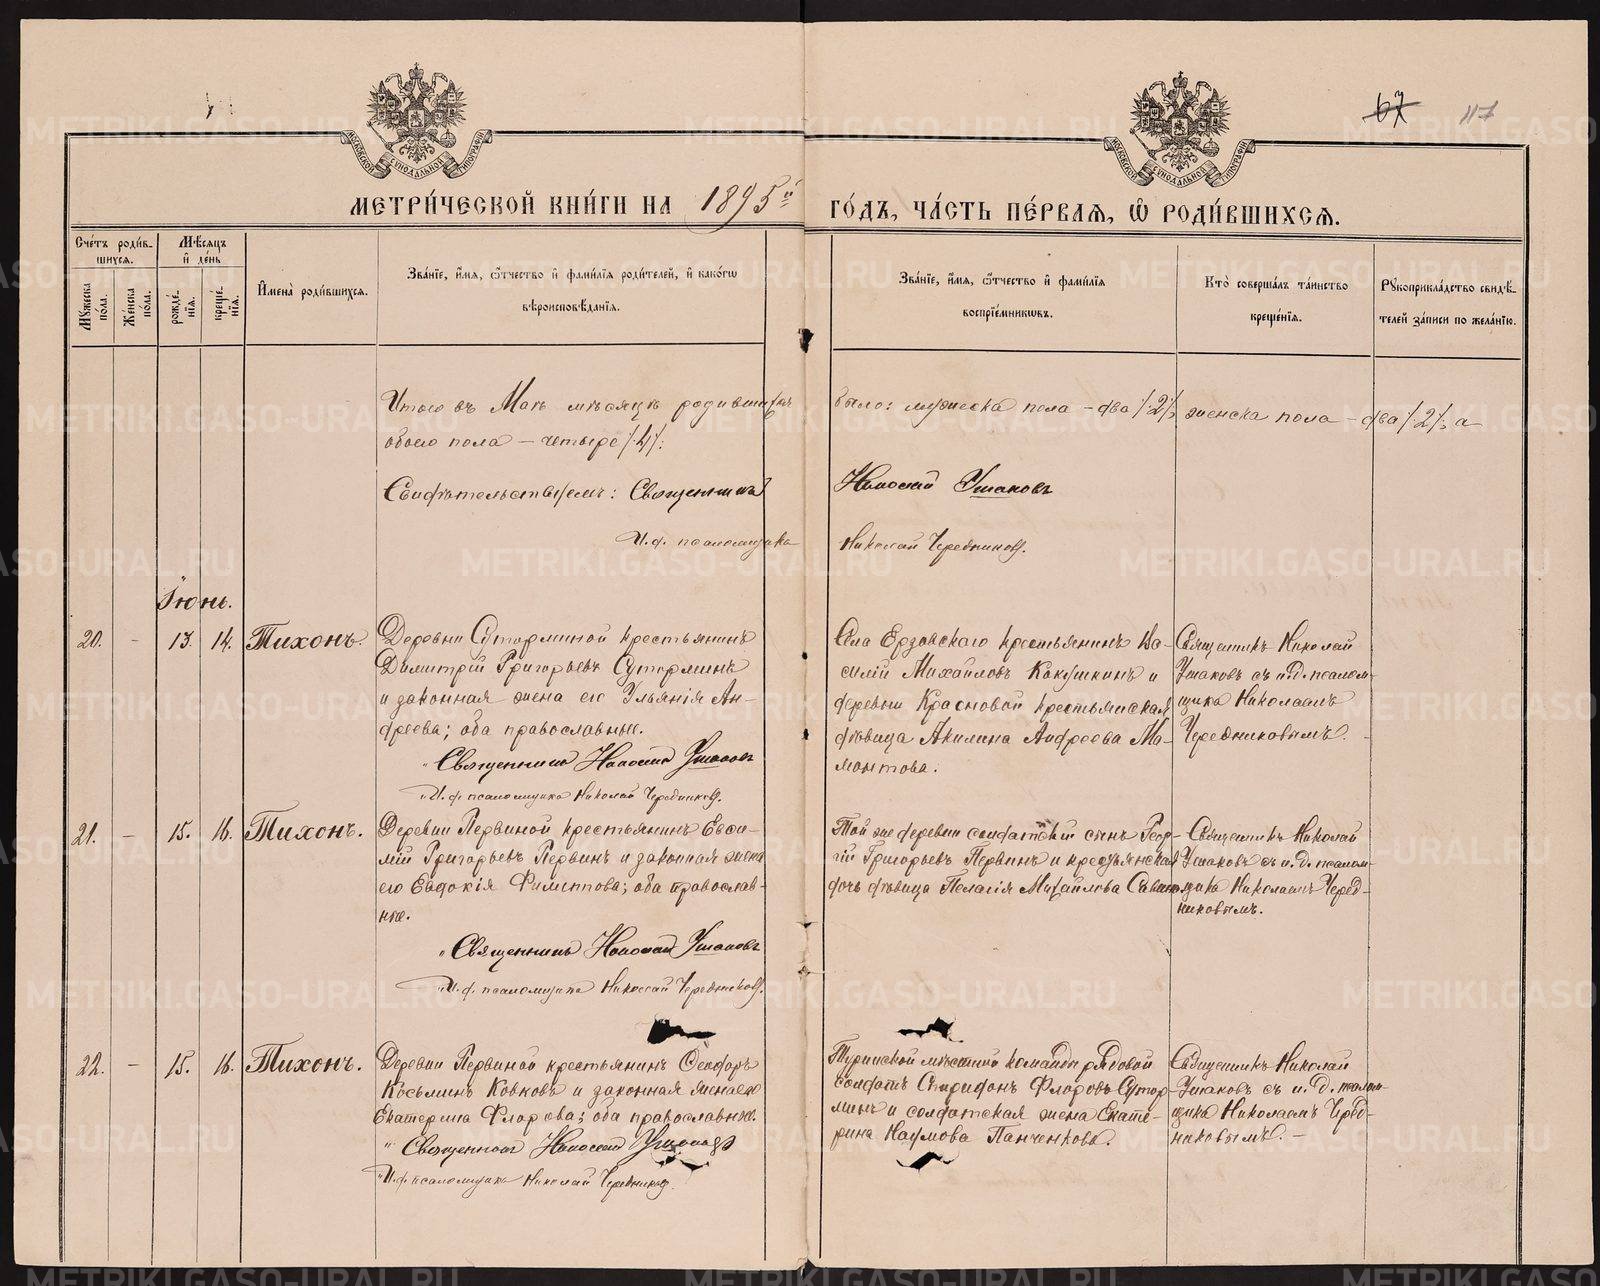 67 117
МОСКОВСКОЙ СѴНОДАЛЬНОЙ ТИПОГРАФІИ
МОСКОВСКОЙ СѴНОДАЛЬНОЙ ТИПОГРАФІИ
МЕТРИ́ЧЕСКОЙ КНИ́ГИ НА 1895й ГО́ДЪ, ЧА́СТЬ ПЕ́РВАѦ, Ѽ РОДИ́ВШИХСѦ.
Сче́тъ роди́в-
шихсѧ.
Мꙋ́жеска по́ла.
Же́нска по́ла.
Мѣ́сѧцъ
и҆ де́нь
рожде́-
нїѧ.
креще́-
нїѧ.
И҆мена̀ роди́вшихсѧ.
Зва́нїе, и҆́мѧ, ѻ҆́тчество и҆ фами́лїѧ роди́телей, и҆ како́гѡ
вѣроисповѣ́данїѧ.
Зва́нїе, и҆́мѧ, ѻ҆́тчество и҆ фами́лїѧ
воспрїе́мникѡвъ.
Кто̀ соверша́лъ та́инство
креще́нїѧ.
Рꙋкоприкла́дство свидѣ́-
телей за́писи по жела́нїю.
Итого въ Маѣ мѣсяцѣ родившихся было: мужеска пола – два /:2/:, женска пола – два /:2/:, а
обоего пола – четыре /:4/:
Свидѣтельствуемъ: Священникъ Николай Ушаковъ
И.д. псаломщика Николай Чередниковъ.
Іюнь.
20. – 13. 14. Тихонъ.
Деревни Суторминӑой крестьянинъ
Димитрій Григорьевъ Суторминъ
и законная жена его Ульянія Ан-
дреева; оба православные.
Священникъ Николай Ушаковъ
И.д. псаломщика Николай Чередниковъ.
Села Ерзовскаго крестьянинъ Ва-
силій Михайловъ Кокушкинъ и
деревни Красновой крестьянская
дѣвица Акилина Андреева Ма-
монтова.
Священникъ Николай
Ушаковъ съ и.д. псалом-
щика Николаемъ
Чередниковымъ.
21. – 15. 16. Тихонъ.
Деревни Первиной крестьянинъ Евѳи-
мій Григорьевъ Первинъ и законная жена
его Евдокія Филиппова; оба православ-
ные.
Священникъ Николай Ушаковъ
И.д. псаломщика Николай Чередниковъ.
Той же деревни солдатскій сынъ Геор-
гій Григорьевъ Первинъ и крестьянская
дочь дѣвица Пелагія Михайлова
Священникъ Николай
Ушаковъ съ и.д. псалом-
щика Николаемъ Черед-
никовымъ.
22. – 15. 16. Тихонъ.
Деревни Первиной крестьянинъ Ѳеодоръ
Косьминъ Ковковъ и законная жена его
Екатерина Флорова; оба православные.
Священникъ Николай Ушаковъ
И.д. псаломщика Николай Чередниковъ.
Туринской мѣстной команды рядовой
солдатъ Спиридонъ Флоровъ Сутор-
минъ и солдатская жена Екате-
рина Наумова Панченкова.
Священникъ Николай
Ушаковъ съ и.д. псалом-
щика Николаемъ Черед-
никовымъ. –
METRIKI.GASO-URAL.RU